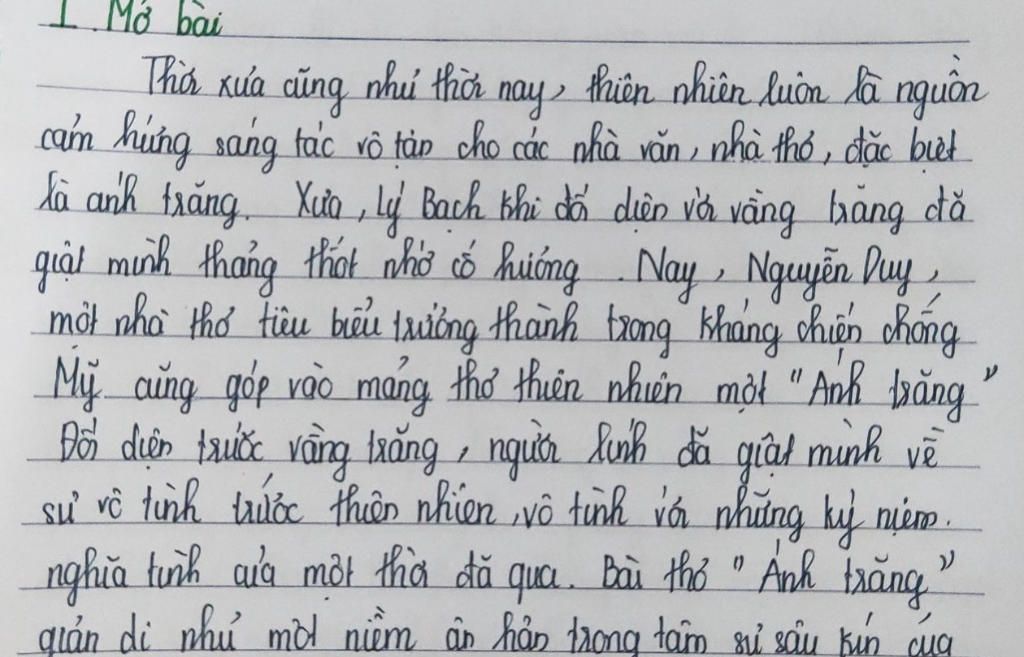 I. Mở bài
Thời xưa cũng như thời nay, thiên nhiên luôn là nguồn
cảm hứng sáng tác vô tận cho các nhà văn, nhà thơ, đặc biệt
là ánh trăng. Xưa, Lý Bạch khi đối diện với vầng trăng đã
giật mình thảng thốt nhớ cố hương. Nay, Nguyễn Duy,
một nhà thơ tiêu biểu trưởng thành trong kháng chiến chống
Mỹ cũng góp vào mảng thơ thiên nhiên một "Ánh trăng"
Đối diện trước vầng trăng, người lính đã giật mình về
sự vô tình trước thiên nhiên, vô tình với những kỷ niệm.
nghĩa tình của một thời đã qua. Bài thơ "Ánh trăng"
giản dị như một niềm ân hận trong tâm sự sâu kín của